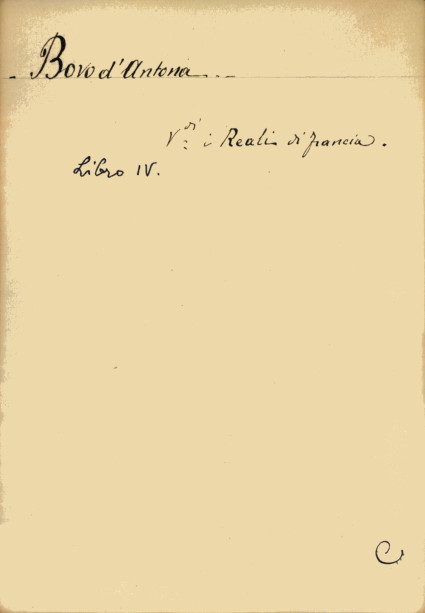 Bovo d'Antona
V.di i Reali di francia.
Libro IV.
C